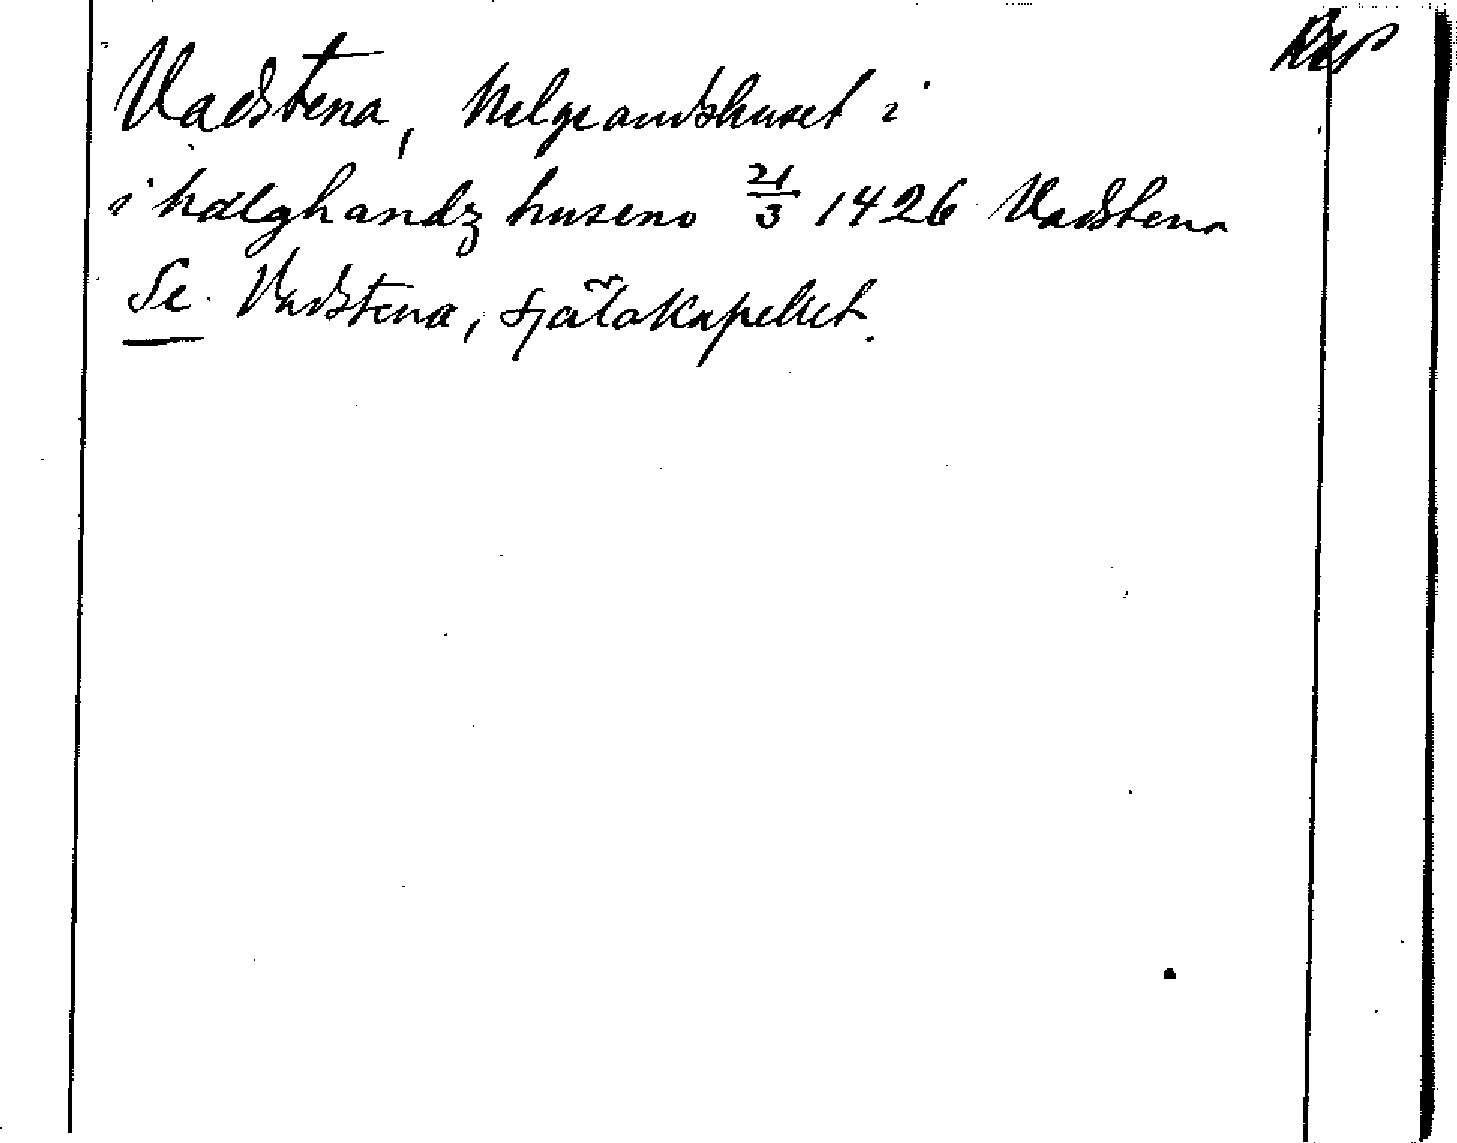 Rep
Vadstena, Helgeandshuset i
i hælghandz huseno 21/3 1426 Vadstena
Se Vadstena, Själakapellet.